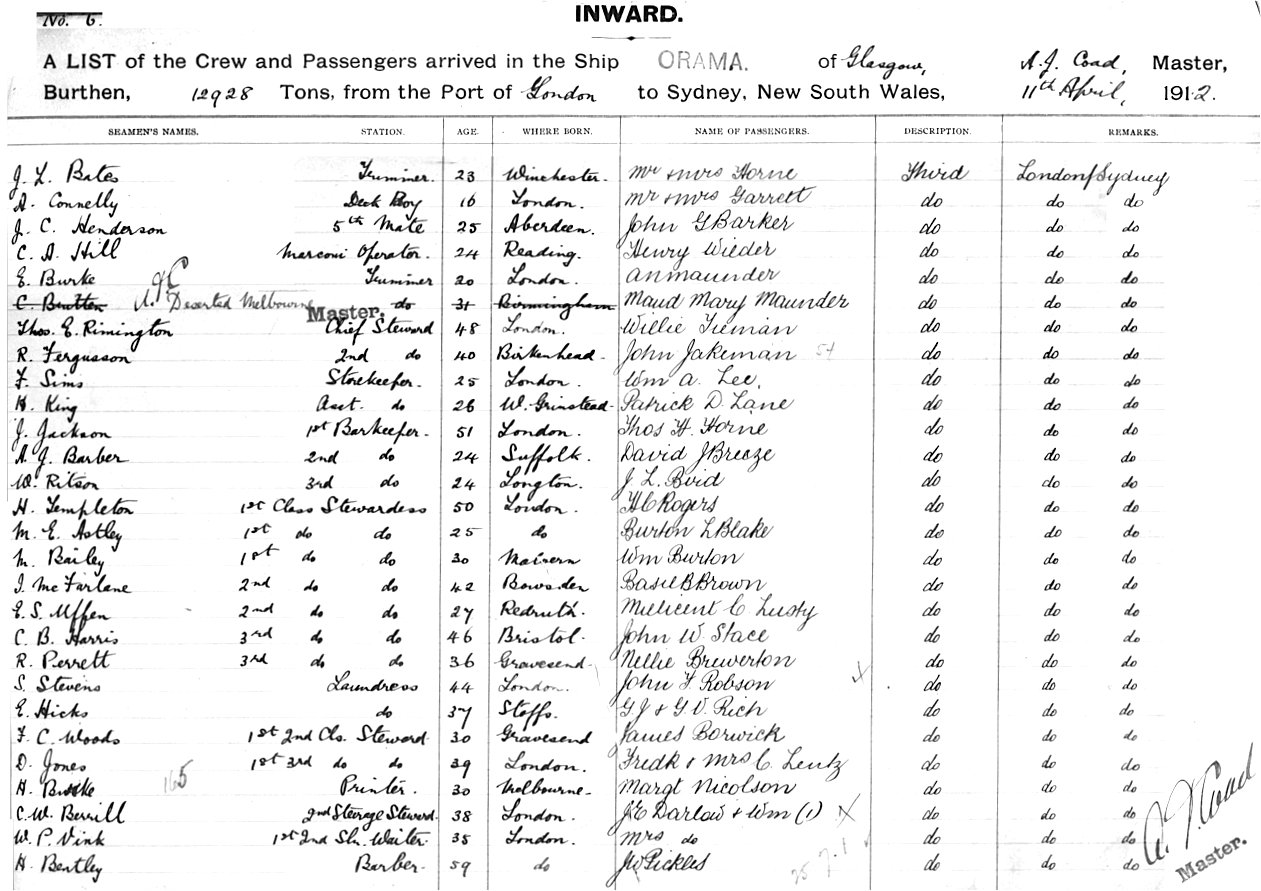 No. 6.
INWARD.
A LIST of the Crew and Passengers arrived in the Ship ORAMA. of Glasgow, A. J. Coad, Master,
Burthen, 12928 Tons, from the Port of London to Sydney, New South Wales, 11th April, 1912.
SEAMEN'S NAMES. STATION. AGE. WHERE BORN. NAME OF PASSENGERS. DESCRIPTION. REMARKS.
J. L. Bates Trimmer. 23 Winchester. Mr & Mrs Horne Third London/Sydney
A. Connelly Deck Boy 16 London. Mr & Mrs Garrett do do do
J. C. Henderson 5th Mate 25 Aberdeen. John G Barker do do do
C. A. Hill Marconi Operator. 24 Reading. Henry Wieder do do do
E. Burke Trimmer 20 London. A N Maunder do do do
C. Brutten A. J. C Deserted Melbourne Master. do 31 Birmingham Maud Mary Maunder do do do
Thos. E. Rimington Chief Steward 48 London. Willie Tieman do do do
R. Fergusson 2nd do 40 Birkenhead. John Jakeman 54 do do do
F. Sims Storekeeper. 25 London. Wm A. Lee. do do do
H. King Asst. do 26 W. Grinstead. Patrick D Lane do do do
J. Jackson 1st Barkeeper. 51 London. Thos H. Horne do do do
A. J. Barber 2nd do 24 Suffolk. David J Breeze do do do
W. Ritson 3rd do 24 Longton. J. L. Bird do do do
H. Templeton 1st Class Stewardess 50 London. H C Rogers do do do
M. E. Astley 1st do do 25 do Burton L Blake do do do
M. Bailey 1st do do 30 Malvern Wm Burton do do do
I. McFarlane 2nd do do 42 Bowsden Basil B Brown do do do
E. S. Uffen 2nd do do 27 Redruth. Millicent C Lusty do do do
C. B. Harris 3rd do do 46 Bristol. John W. Stace do do do
R. Perrett 3rd do do 36 Gravesend Nellie Brewerton do do do
S. Stevens Laundress 44 London. John F. Robson do do do
E. Hicks do 37 Staffs. G J & G V. Rich do do do
F. C. Woods 1st 2nd Cls. Steward 30 Gravesend James Borwick do do do
D. Jones 1st 3rd do do 39 London. Fredk & Mrs C. Lentz do do do
H. 165 Printer. 30 Melbourne. Margt Nicolson do do do
C. W. Berrill 2nd Steerage Steward. 38 London. J E Darlow & Wm (1) do do do
W. P. Vink 1st 2nd Sln. Waiter. 35 London. Mrs do do do do
H. Bentley Barber. 59 do J W Pickles do do do
A. J. Coad
Master.